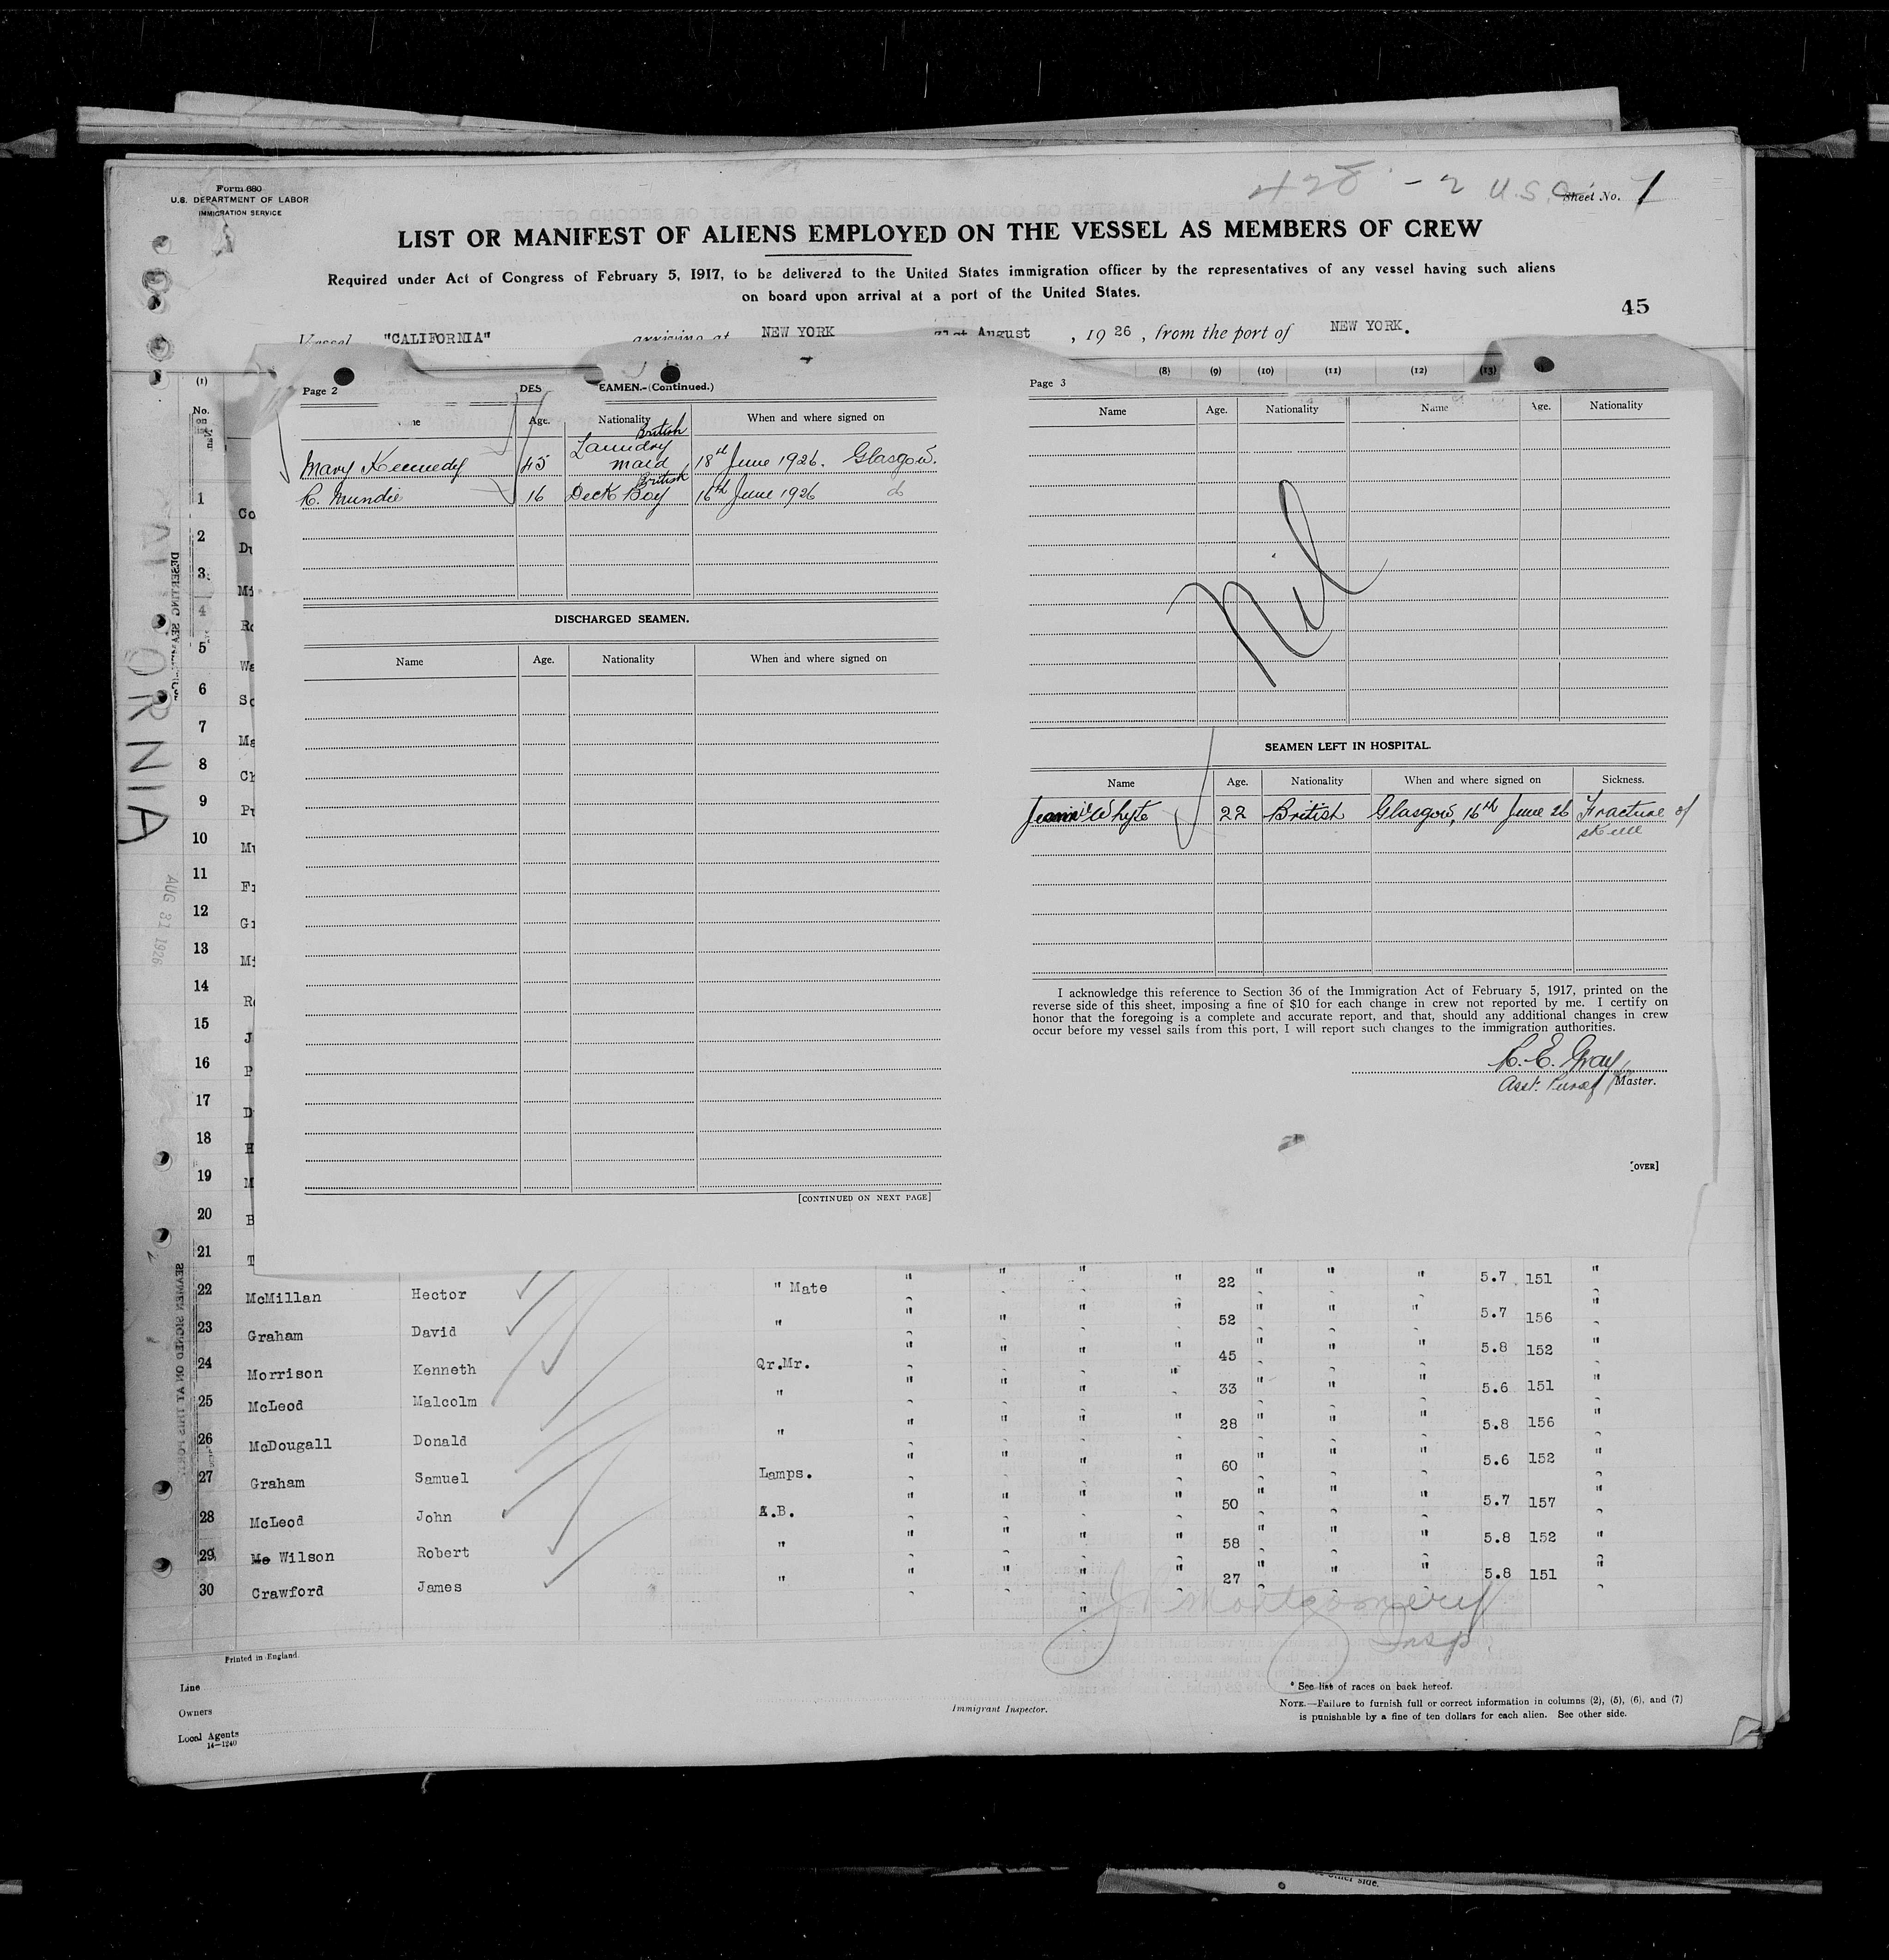 Form 680
U.S. DEPARTMENT OF LABOR
IMMIGRATION SERVICE
428 - 2 U.S.C.
Sheet No. 1
LIST OR MANIFEST OF ALIENS EMPLOYED ON THE VESSEL AS MEMBERS OF CREW
Required under Act of Congress of February 5, 1917, to be delivered to the United States immigration officer by the representatives of any vessel having such aliens
on board upon arrival at a port of the United States.
45
Vessel "CALIFORNIA" arriving at NEW YORK 31st August , 1926 , from the port of NEW YORK.
(1) (8) (9) (10) (11) (12) (13)
No. on list
Page 2 DES EAMEN.-(Continued.)
me Age. Nationality When and where signed on
Mary Kennedy 45 Laundry maid British 18th June 1926. Glasgow.
C. Mundie 16 Deck Boy British 16th June 1926 do
DISCHARGED SEAMEN.
Name Age. Nationality When and where signed on
[CONTINUED ON NEXT PAGE]
Page 3
Name Age. Nationality Name Age. Nationality
Nil
SEAMEN LEFT IN HOSPITAL.
Name Age. Nationality When and where signed on Sickness.
Jeannie Whyte 22 British Glasgow, 16th June 26 Fracture of
skull
I acknowledge this reference to Section 36 of the Immigration Act of February 5, 1917, printed on the
reverse side of this sheet, imposing a fine of $10 for each change in crew not reported by me. I certify on
honor that the foregoing is a complete and accurate report, and that, should any additional changes in crew
occur before my vessel sails from this port, I will report such changes to the immigration authorities.
C. E. Gray
Asst. Purser Master.
[OVER]
ORNIA
AUG 31 1926
DESERTING SEAMEN
SEAMEN SIGNED ON AT THIS PORT
1 Co
2 Du
3 Mi
4 Ro
5 Wa
6 Sc
7 Ma
8 Ch
9 Pu
10 Mu
11 Fr
12 Gr
13 Mi
14 Ro
15 J
16 P
17 D
18 H
19 M
20 B
21 T
22 McMillan Hector " Mate " " " " 22 " " " 5.7 151 "
23 Graham David " " " " " 52 " " " 5.7 156 "
24 Morrison Kenneth Qr.Mr. " " " " 45 " " " 5.8 152 "
25 McLeod Malcolm " " " " " 33 " " " 5.6 151 "
26 McDougall Donald " " " " " 28 " " " 5.8 156 "
27 Graham Samuel Lamps. " " " " 60 " " " 5.6 152 "
28 McLeod John A.B. " " " " 50 " " " 5.7 157 "
29 Mc Wilson Robert " " " " " 58 " " " 5.8 152 "
30 Crawford James " " " " " 27 " " " 5.8 151 "
J Montgomery
Insp.
Printed in England.
Line
Owners
Local Agents
14—1240
Immigrant Inspector.
* See list of races on back hereof.
NOTE.—Failure to furnish full or correct information in columns (2), (5), (6), and (7)
is punishable by a fine of ten dollars for each alien. See other side.
other side.